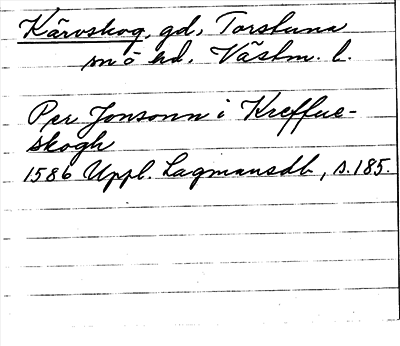 Kärvskog, gd, Torstuna
sn ö hd. Västm. l.
Per Jonsonn i Kreffue-
skogh
1586 Uppl. Lagmansdb, s. 185.